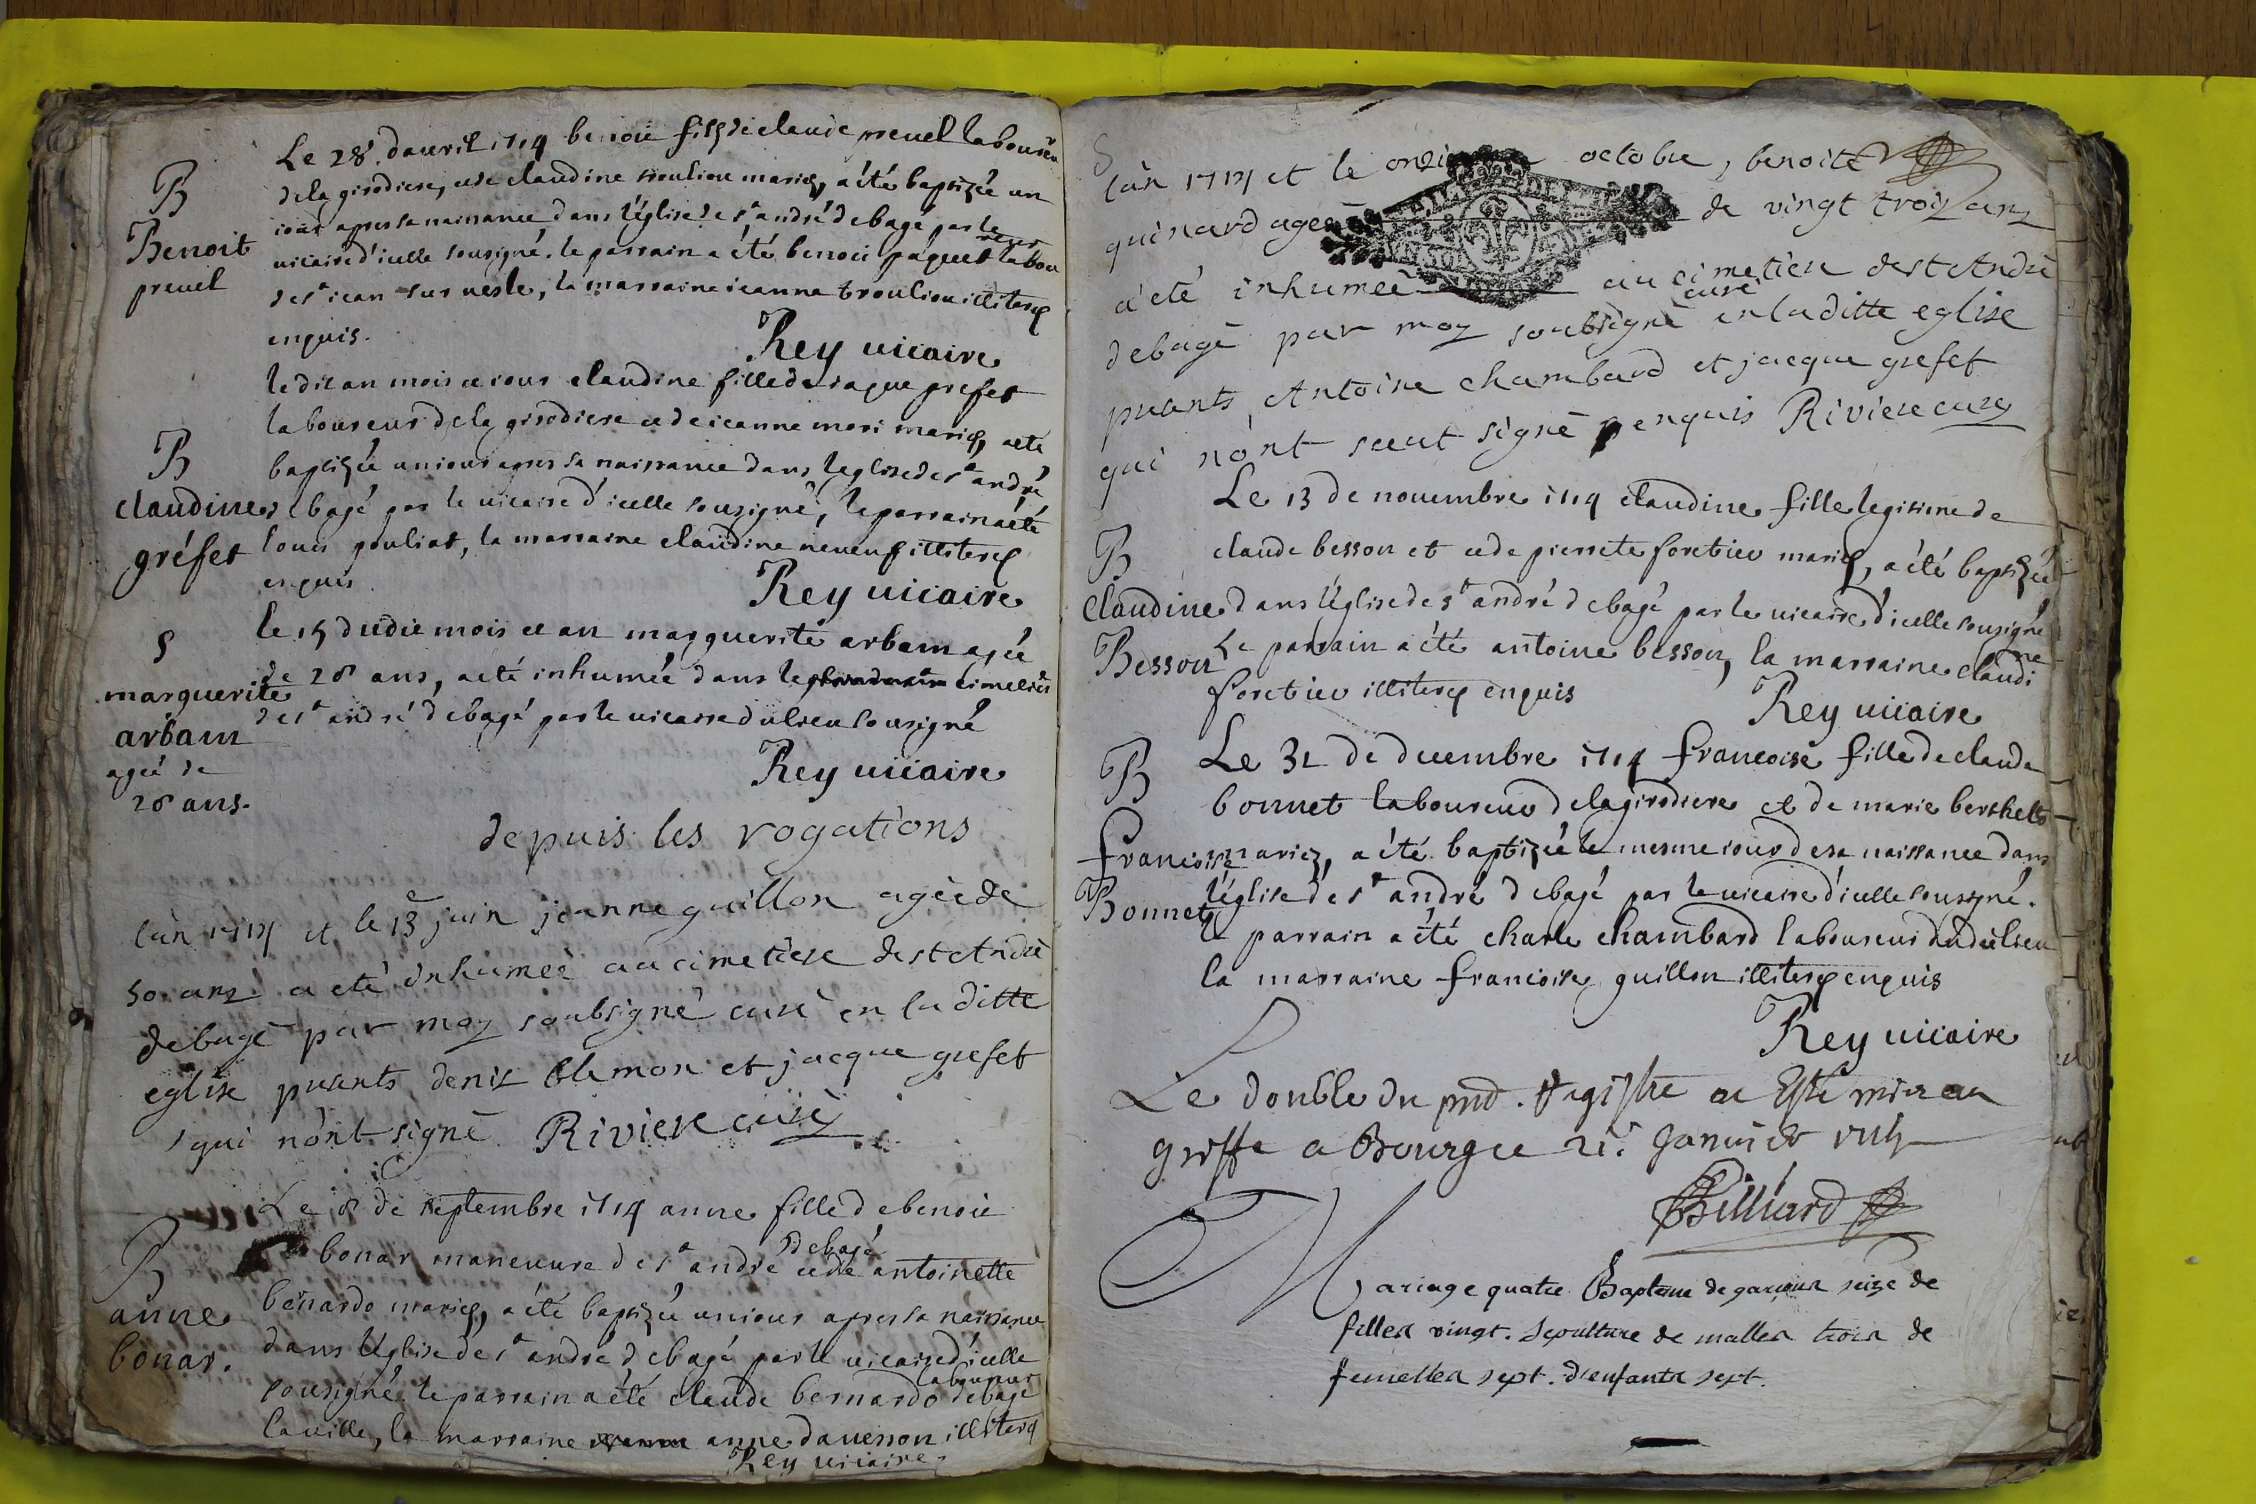 Le 28. dauril 1714 benoit fils de claude preuel laboureur
B
de la girodiere, et de claudine trouliou mariez, a été baptizée un
iour apres sa naissance dans l'église de st andré de bagé par le
Benoit
vicaire d'icelle sousigné. le parrain a été benoit páquet labou
reur
preuel
de st iean sur vesle, la marraine ieanne trouliou illiterez
enquis.
Rey vicaire
le dit an mois et iour claudine fille de iaque grefet
laboureur de la girodiere et de ieanne mari mariez, a été
B
baptizée un iour apres sa naissance dans l'eglise de st andré
claudine
de bagé par le vicaire d'icelle sousigné, le parrain a été
gréfet
louis pouliat, la marraine claudine neveuf illiterez
enquis
Rey vicaire
S
le 15 dudit mois et an marguerite arbain agée
marguerite
de 28 ans, a été inhumée dans le cimetiere
arbain
de st andré de bagé par le vicaire du lieu sousigné
agée de
Rey vicaire
28 ans.
depuis les rogations
lán 1714 et le 13e juin jeanne guillon ageè de
50 anz a eté inhumeè au cimetiere de st Andrè
de bagè par moy soubsignè curè en la ditte
eglise pnsants deniz blemon et jacque grefet
qui nónt signè Riviere curè
Le 8 de septembre 1714 anne fille de benoit
B
bonar maneuure de st andre de bagé et de antoinette
anne
benardo mariez, a été baptizée un iour apres sa naissance
bonar.
dans l'église de st andré de bagé par le vicaire d'icelle
sousigné. le parrain a été claude bernardo laboureur de bagé
la ville, la marraine anne dauesson illiterez
Rey vicaire
S
lán 1714 et le onzieme octobre, benoite
quinard ageè de vingt troiz anz
a été inhumeè au cimetiere de st Andrè
de bagè par moy soubsignè curè en la ditte eglise
pnsants, Antoine chambard et jacque grefet
qui nónt sceut signè enquis Riviere curè
Le 13 de nouembre 1714 claudine fille legitime de
B
claude besson et de pierrete foretier mariez, a été baptizée
claudine
dans l'église de st andré de bagé par le vicaire d'icelle sousigné
Besson
Le parrain a été antoine besson, la marraine claudi
ne
foretier illiterez enquis
Rey vicaire
B
Le 31 de decembre 1714 francoise fille de claude
bonnet laboureur de la girodiere et de marie berthelo
francoise
mariez, a été baptizée le mesme iour de sa naissance dans
Bonnet
l'église de st andré de bagé par le vicaire d'icelle sousigné.
le parrain a été charle chambard laboureur dudit lieu
la marraine francoise guillon illiterez enquis
Rey vicaire
Le double du pnt. Registre a Esté mis au
greffe a Bourg ce 21. Janvier
Billiard
Mariage quatre Bapteme de garçons seize de
filles vingt. Sepulture de masles trois de
femelles sept. d'enfants sept.